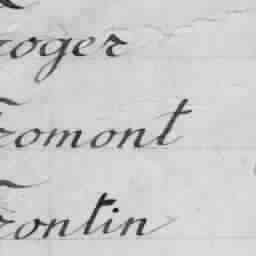 roger
Fromont
Frontin